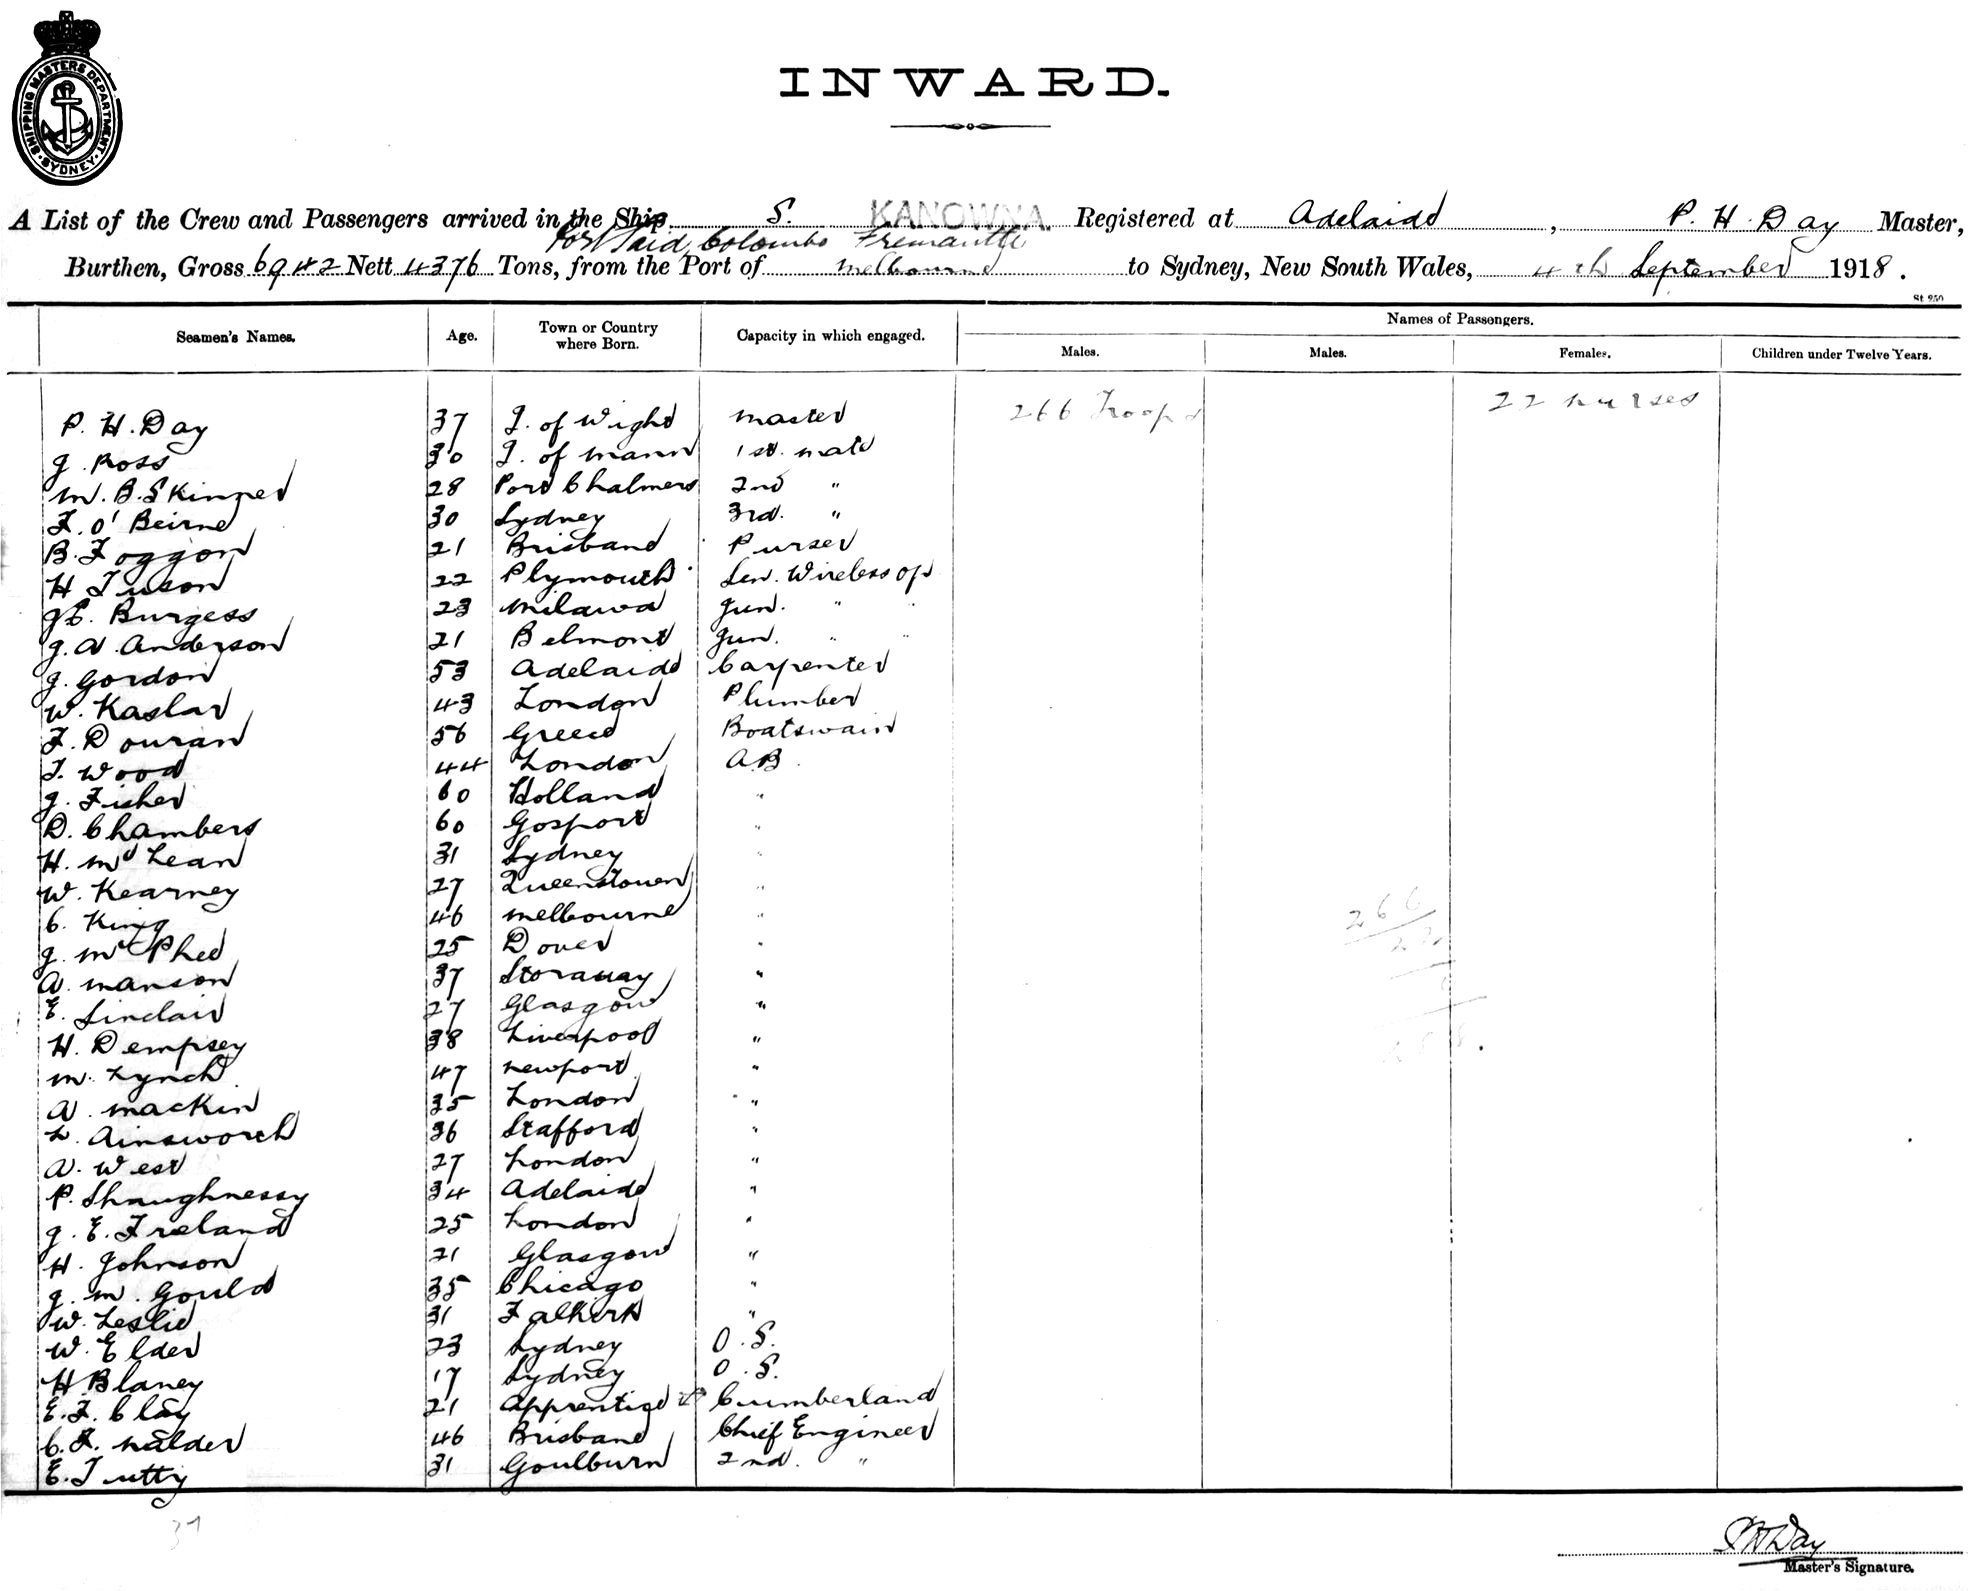 SHIPPING MASTERS DEPARTMENT · SYDNEY ·
INWARD.
A List of the Crew and Passengers arrived in the Ship S. KANOWNA. Registered at Adelaide, P. H. Day Master,
Port Said, Colombo Fremantle
Burthen, Gross 6942 Nett 4376 Tons, from the Port of Melbourne to Sydney, New South Wales, 4th September 1918.
St 250
Seamen's Names. Age. Town or Country where Born. Capacity in which engaged. Names of Passengers.
Males. Males. Females. Children under Twelve Years.
266 Troops 22 nurses
P. H. Day 37 I. of Wight master
J. Ross 30 I. of Mann 1st. mate
M. B. Skinner 28 Port Chalmers 2nd "
F. O'Beirne 30 Sydney 3rd. "
B. Foggon 21 Brisbane Purser
H Tuson 22 Plymouth Sen. Wireless op
Burgess 23 Milawa Jun. " "
J. A. Anderson 21 Belmont Jun. " "
J. Gordon 53 Adelaide Carpenter
W. Kaslar 43 London Plumber
F. Douran 56 Greece Boatswain
T. Wood 44 London A.B.
J. Fisher 60 Holland "
D. Chambers 60 Gosport "
H. McLean 31 Sydney "
W. Kearney 27 Queenstown "
C. King 46 Melbourne "
J. McPhee 25 Dover "
A. Manson 37 Storaway "
E. Sinclair 27 Glasgow "
H. Dempsey 38 Liverpool "
M. Lynch 47 Newport "
A. Mackin 35 London "
L. Ainsworth 36 Stafford "
A. West 27 London "
P. Shaughnessy 34 Adelaide "
J. E. Ireland 25 London "
H. Johnson 21 Glasgow "
J. M. Gould 35 Chicago "
W. Leslie 31 Falkirk "
W. Elder 23 Sydney O.S.
H Blaney 17 Sydney O.S.
E. F. Clay 21 Apprentice Cumberland
C. F. Nalder 46 Brisbane Chief Engineer
E. Tutty 31 Goulburn 2nd. "
266
P H Day
Master's Signature.